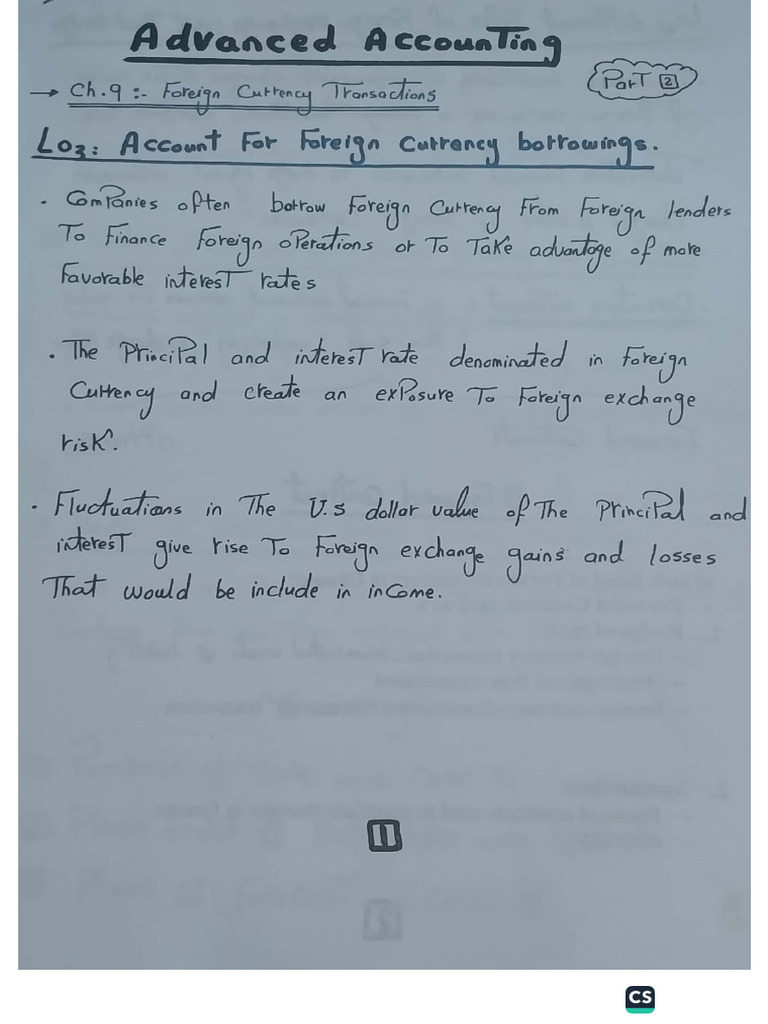 Advanced Accounting
→ Ch.9 :- Foreign Currency Transactions
Part 2
Lo3: Account For Foreign Currency borrowings.
• Companies often borrow Foreign Currency From Foreign lenders
To Finance Foreign operations or To Take advantage of more
Favorable interest rates
• The Principal and interest rate denominated in Foreign
Currency and create an exposure To Foreign exchange
risk.
• Fluctuations in The U.S dollar value of The Principal and
interest give rise To Foreign exchange gains and losses
That would be include in income.
11
CS